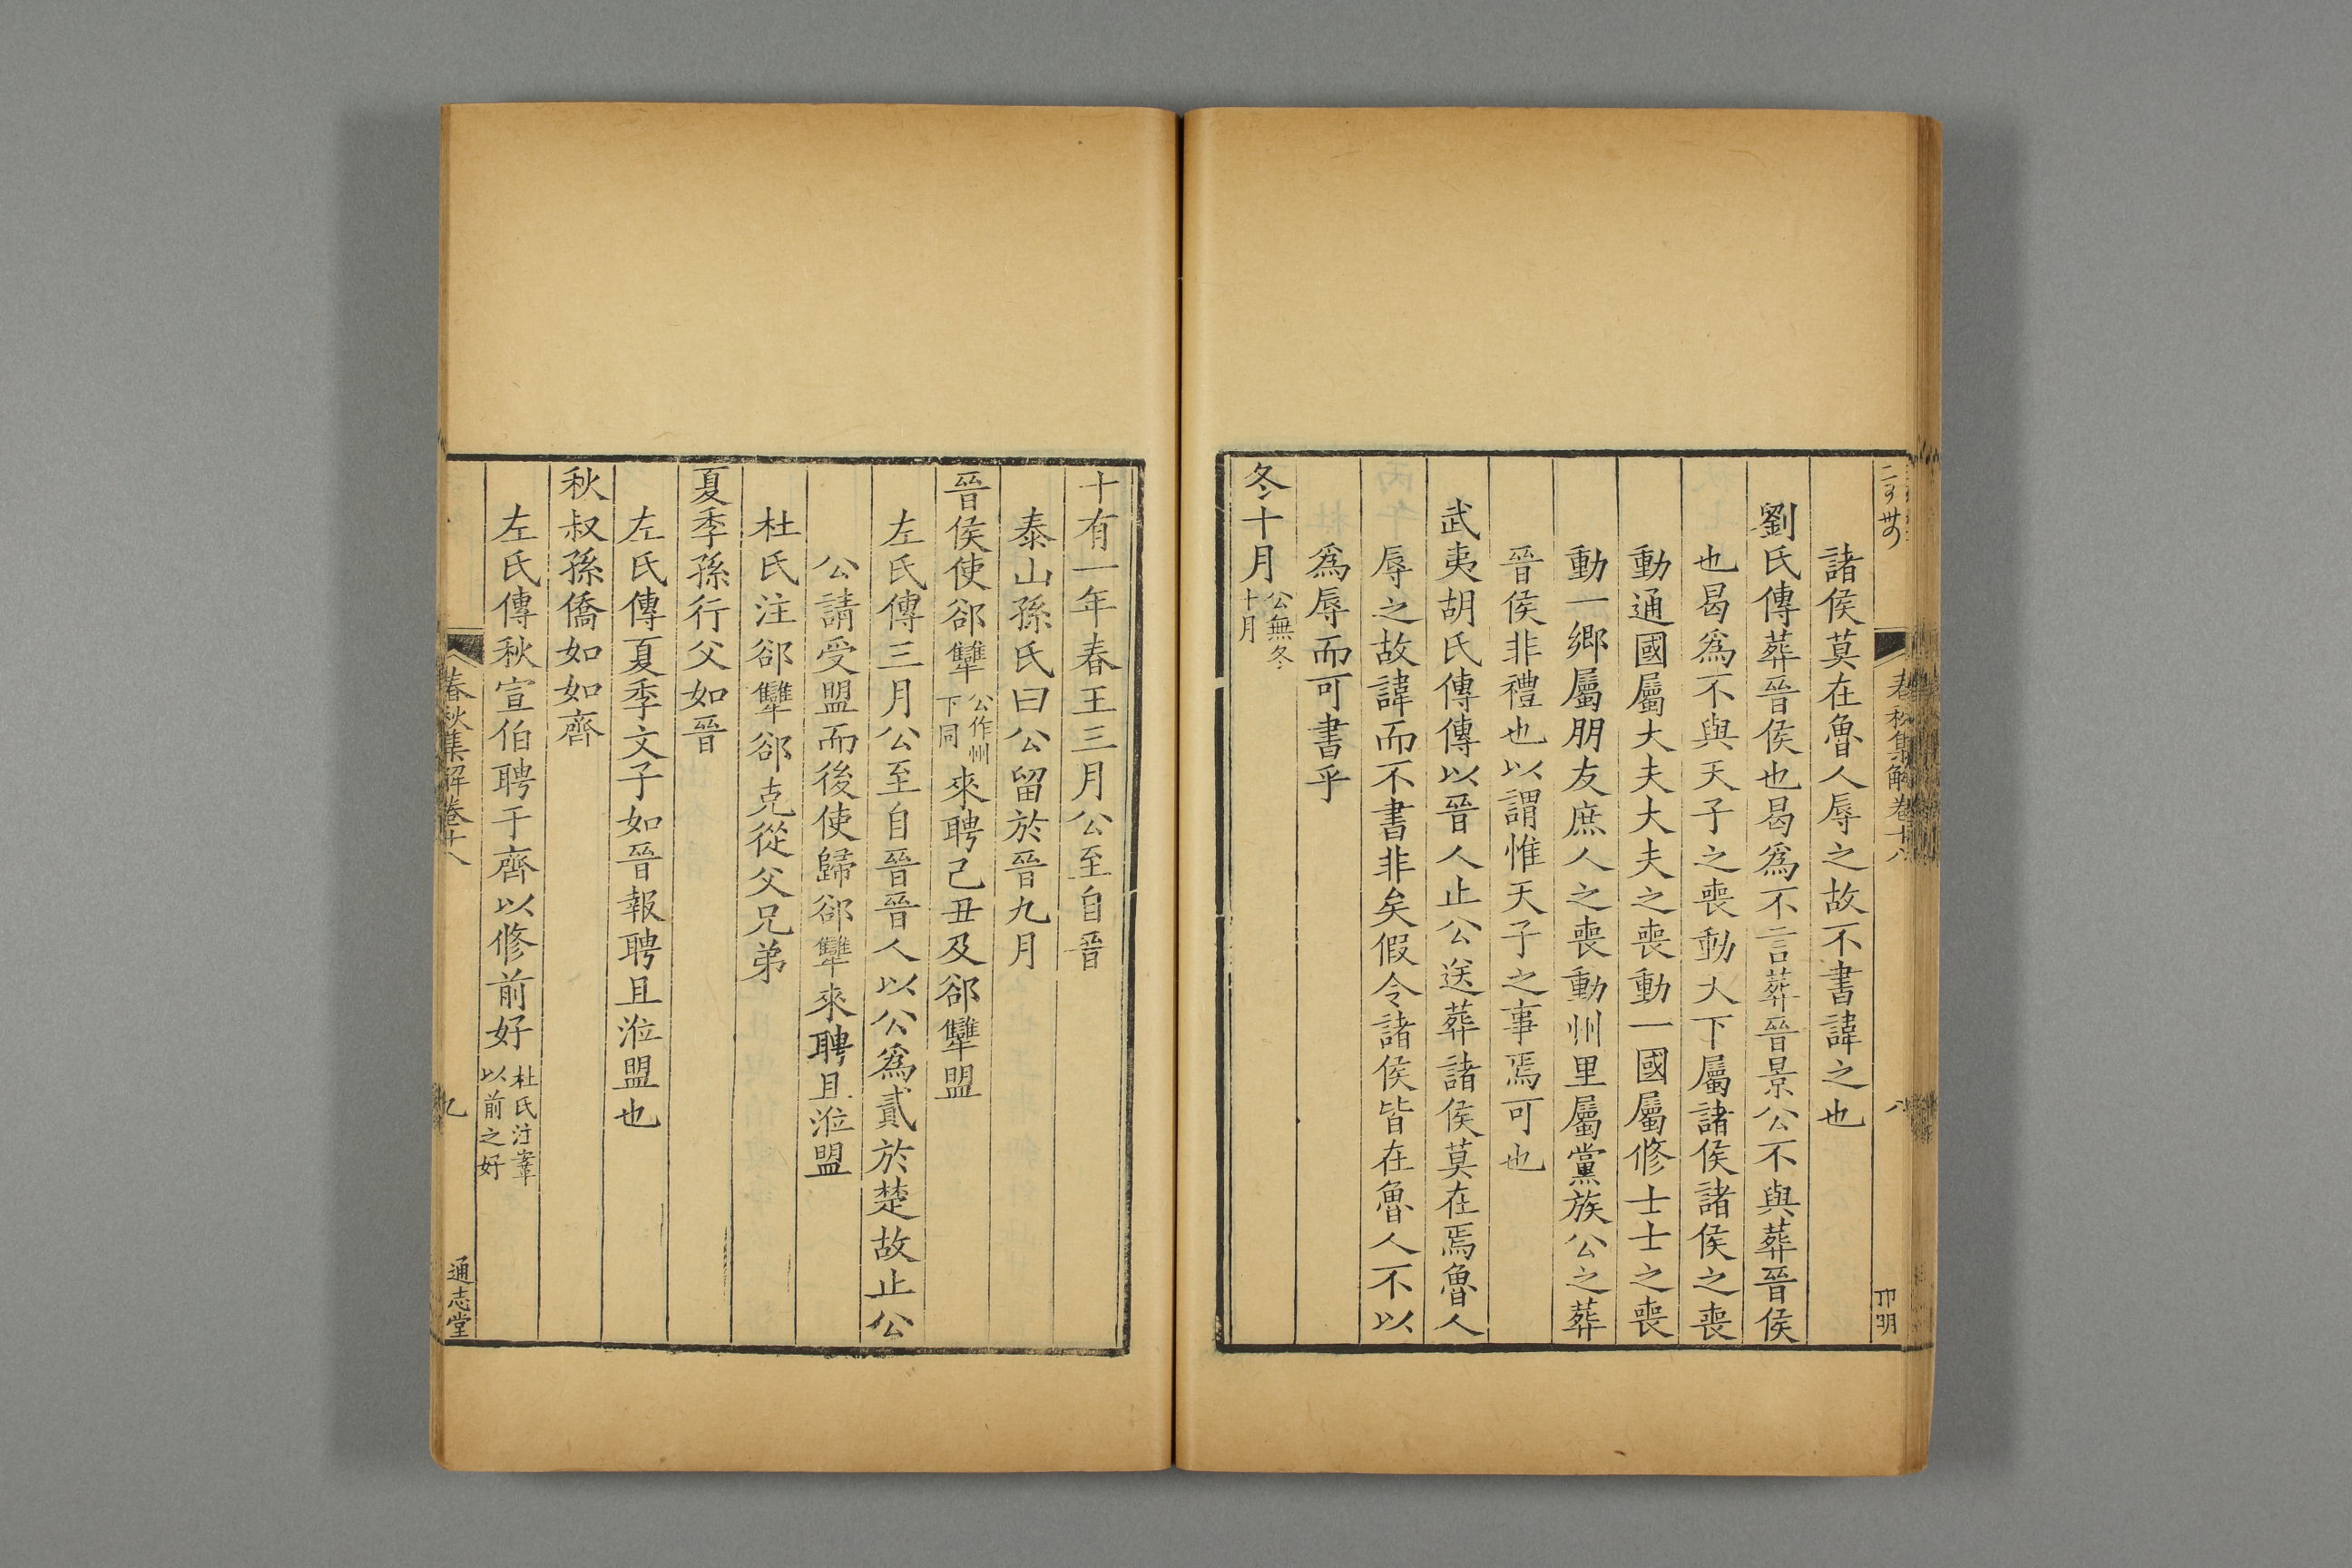 春秋集解卷十八
八
諸侯莫在魯人辱之故不書諱之也
劉氏傳葬晉侯也曷爲不言葬晉景公不與葬晉侯
也曷爲不與天子之喪動天下屬諸侯諸侯之喪
動通國屬大夫大夫之喪動一國屬修士士之喪
動一鄉屬朋友庶人之喪動州里屬黨族公之葬
晉侯非禮也以謂惟天子之事焉可也
武夷胡氏傳傳以晉人止公送葬諸侯莫在焉魯人
辱之故諱而不書非矣假令諸侯皆在魯人不以
爲辱而可書乎
冬十月公無冬十月
十有一年春王三月公至自晉
泰山孫氏曰公留於晉九月
晉侯使郤犫公作州下同來聘己丑及郤犫盟
左氏傳三月公至自晉晉人以公爲貳於楚故止公
公請受盟而後使歸郤犫來聘且涖盟
杜氏注郤犫郤克從父兄弟
夏季孫行父如晉
左氏傳夏季文子如晉報聘且涖盟也
秋叔孫僑如如齊
左氏傳秋宣伯聘于齊以修前好杜氏注鞌以前之好
春秋集解卷十八
九
通志堂